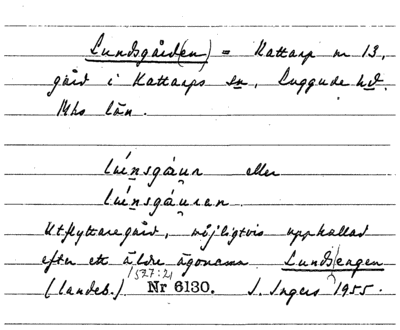 Lundsgård(en) = Kattarp nr 13,
gård i Kattarps sn, Luggude hd.
Mhs län.
lúnsgáurn eller
lúnsgáuran
Utflyttaregård, möjligtvis uppkallad
efter ett äldre ägonamn Lunds|engen
1527:21
(landeb.) Nr 6130. I. Ingers 1955.